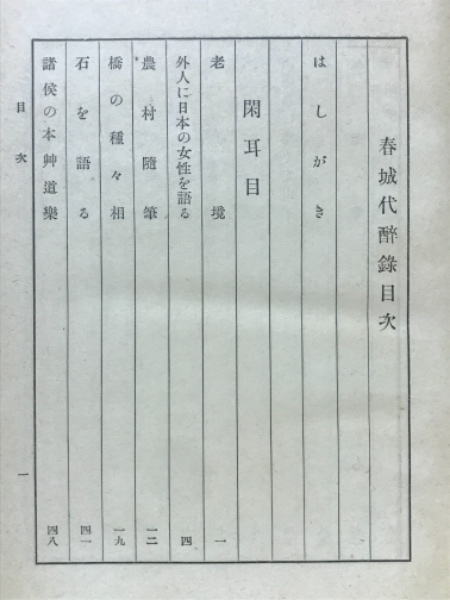 春城代醉錄目次
はしがき
閑耳目
老境 一
外人に日本の女性を語る 四
農村隨筆 一二
橋の種々相 一九
石を語る 四一
諸侯の本艸道樂 四八
目次 一